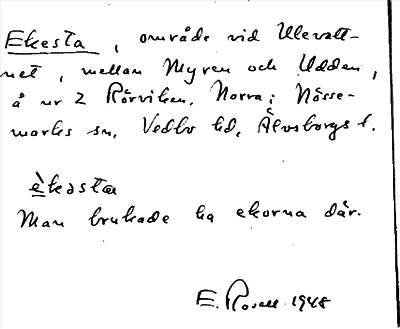 Ekesta, område vid Ulevatt-
net, mellan Myren och Udden,
å nr 2 Rörviken, Norra; Nösse-
marks sn, Vedbo hd, Älvsborgs l.
èkasta
Man brukade ha ekorna där.
E. Rosell 1948